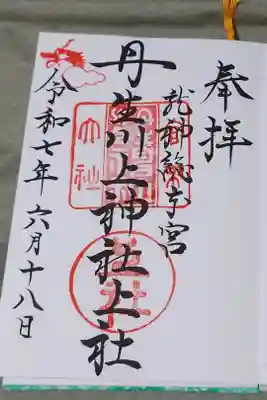 奉拝
龍神総本宮
丹生川上神社上社
令和七年六月十八日